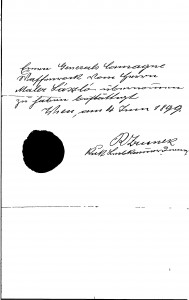 Einen Generals Campagne
Waffenrock vom Herrn
Maler László übernommen
zu haben bestätigt
Wien, am 4 Juni 1899.